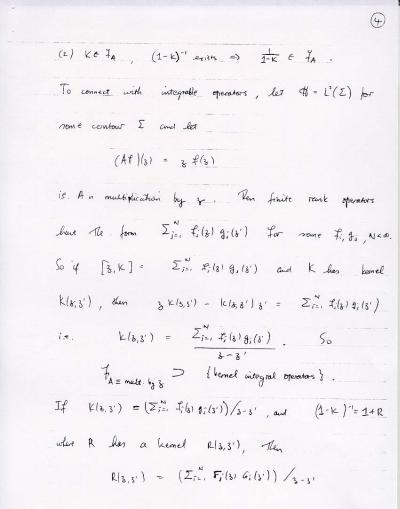 ④
(2) K ∈ 𝓕_A , (1-K)^{-1} exists ⇒ 1/(1-K) ∈ 𝓕_A .
To connect with integrable operators, let 𝓗 = L²(Σ) for
some contour Σ and let
(Af)(z) = z f(z)
ie. A = multiplication by z . Then finite rank operators
have the form Σ_{j=1}^N f_j(z) g_j(z') for some f_j, g_j , N<∞.
So if [z,K] = Σ_{j=1}^N f_j(z) g_j(z') and K has kernel
K(z,z') , then z K(z,z') - K(z,z') z' = Σ_{j=1}^N f_j(z) g_j(z')
i.e. K(z,z') = Σ_{j=1}^N f_j(z) g_j(z') / z-z' . So
𝓕_{A ≡ mult. by z} ⊃ {kernel integral operators} .
If K(z,z') = (Σ_{j=1}^N f_j(z) g_j(z'))/z-z' , and (1-K)^{-1} = 1+R
where R has a kernel R(z,z') , then
R(z,z') = (Σ_{j=1}^N F_j(z) G_j(z')) / z-z'